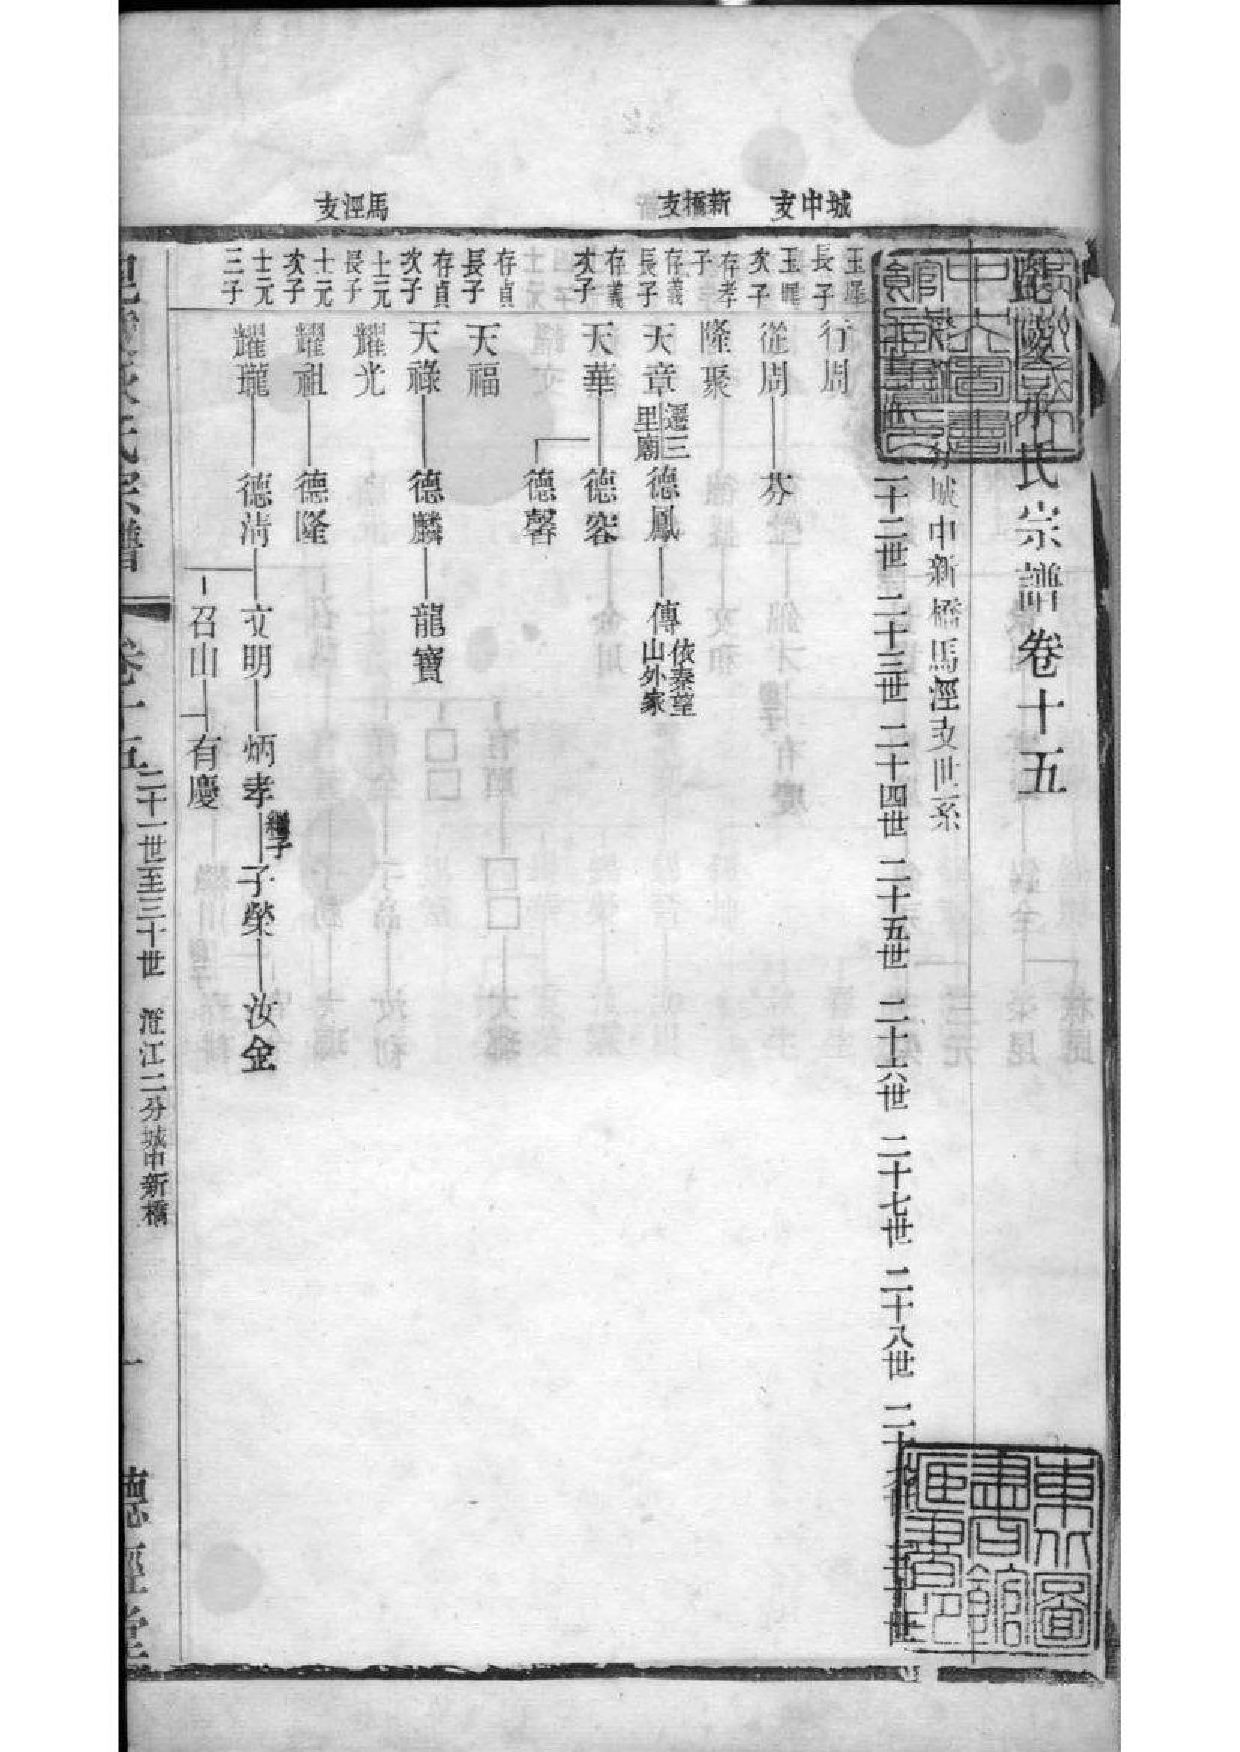 毘陵承氏宗譜卷十五
分城中新橋馬涇支世系
二十二世 二十三世 二十四世 二十五世 二十六世 二十七世 二十八世
城中支
新橋支
馬涇支
長子
行周
玉暉
次子
從周 芬
存孝
子
隆聚
存義
長子
天章 遷三里廟 德鳳 傳 依秦望山外家
存義
次子
天華 德容
德馨
存貞
長子
天福
存貞
次子
天祿 德麟 龍寶
士元
長子
耀光
士元
次子
耀祖 德隆
士元
三子
耀瓏 德清 文明 炳孝 繼子 子榮 汝金
召山 有慶
卷十五
二十一世至三十世 澄江二分城中新橋
一
德經堂
東北圖書館